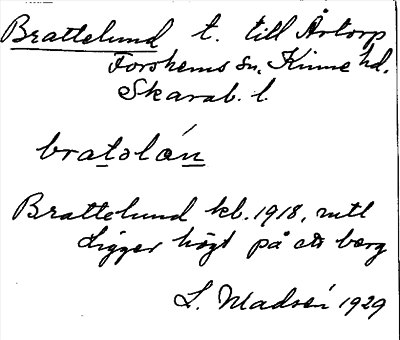 Brattelund t. till Årtorp
Forshems sn, Kinne hd.
Skarab. l.
bratəlán
Brattelund kb. 1918, mtl
Ligger högt på ett berg
L. Madsén 1929